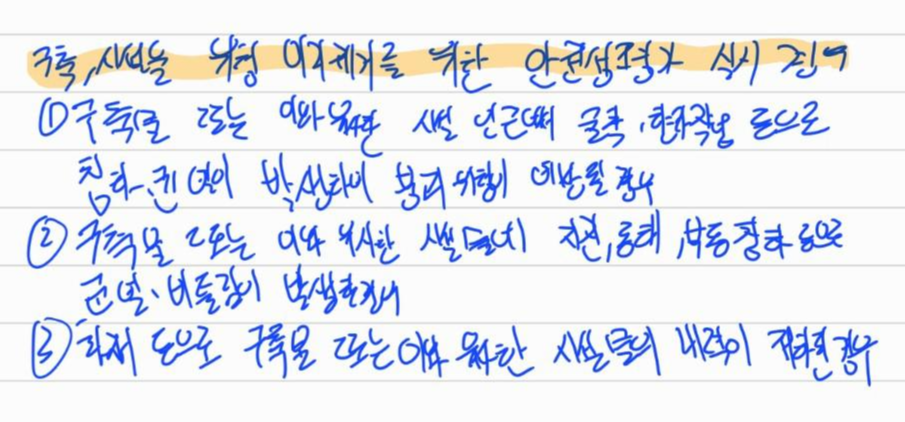 구축,시설물 위험 미리제거를 위한 안전성평가 실시 경우
① 구축물 또는 이와 유사한 시설 인근에서 굴착,항타작업 등으로
침하·균열이 발생하여 붕괴위험이 예상될 경우
② 구축물 또는 이와 유사한 시설물에 지진,동해,부동침하 등으로
균열·비틀림이 발생한 경우
③ 화재 등으로 구축물 또는 이와 유사한 시설물의 내력이 저하된 경우